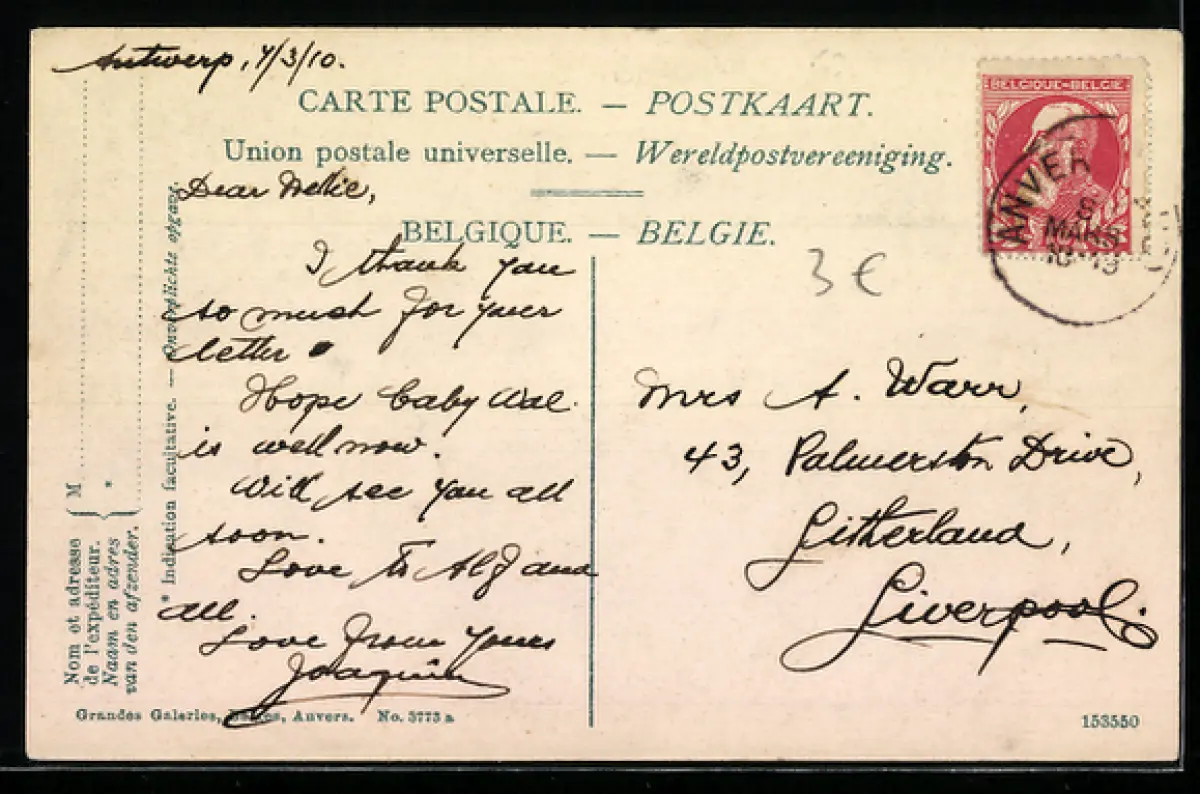 Antwerp, 7/3/10.
CARTE POSTALE. — POSTKAART.
Union postale universelle. — Wereldpostvereeniging.
BELGIQUE. — BELGIE.
Dear Nellie,
I thank you
so much for your
letter.
Hope baby Wal.
is well now.
Will see you all
soon.
Love to Alf and
all.
Love from yours
Joaquim
3 €
Mrs A. Warr,
43, Palmerston Drive,
Litherland,
Liverpool.
BELGIQUE-BELGIE
ANVER
8
MARS
Nom et adresse
de l'expéditeur.
Naam en adres
van den afzender.
M
*
* Indication facultative. — Onverplichte opgave.
Grandes Galeries, Anvers. No. 3773 a
153550